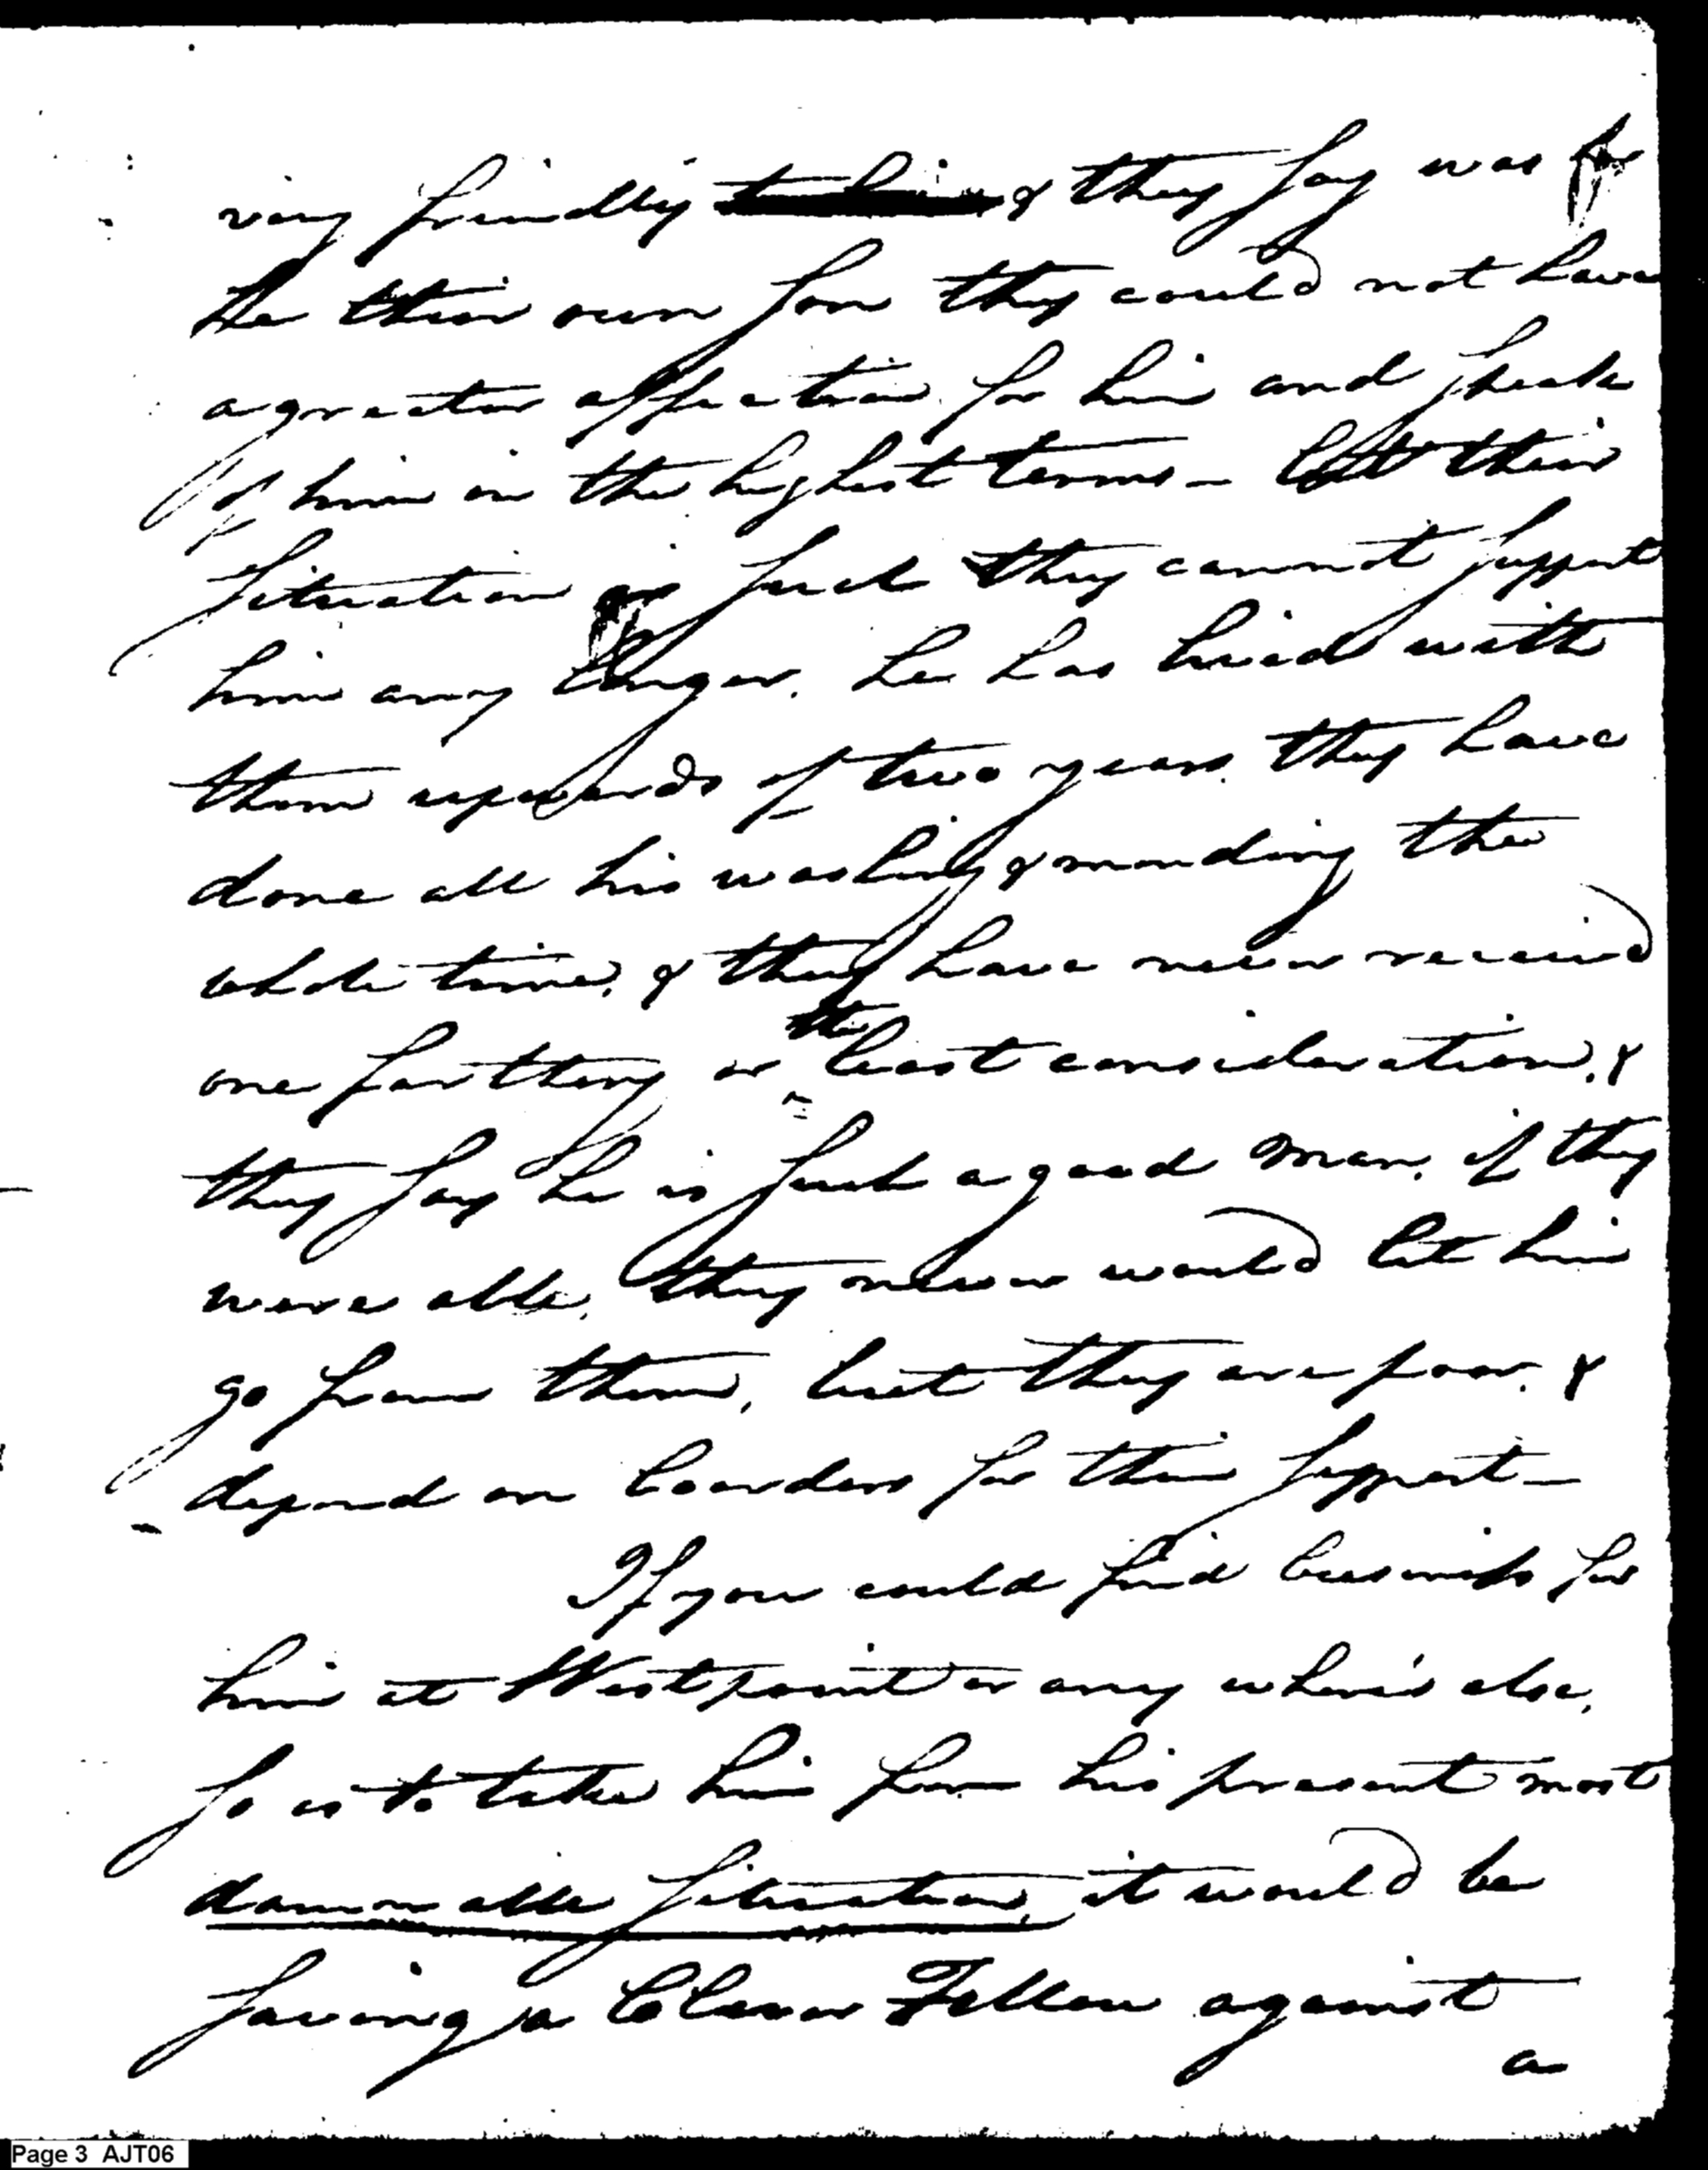 very friendly to him & they say was he
he their own son they could not have
a greater affection for him and speak
of him in the highest terms – but their
situation is such they cannot support
him any longer. he has lived with
them upwards of two years. they have
done all his washing & mending the
whole time, & they have never received
one farthing or the least consideration. &
they say he is such a good man, if they
were able, they never would let him
go from them, but they are poor. &
depend on boarders for their support –
If you could find business for
him at West point or any where's else,
so as to take him from his present most
damnable situation, it would be
saving a Clever Fellow against
a
Page 3 AJT06